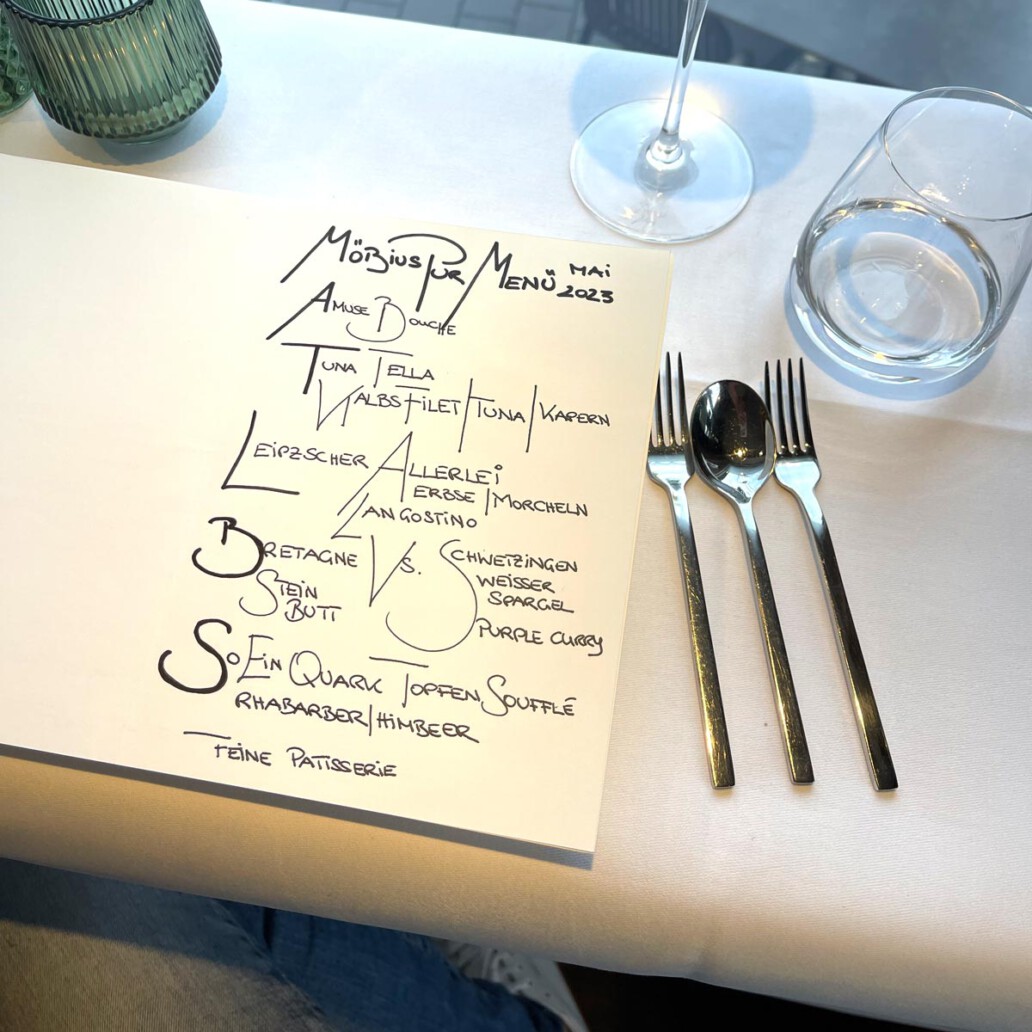 MÖBIUS PUR MENÜ MAI 2023
AMUSE BOUCHE
TUNA TELLA
KALBSFILET | TUNA | KAPERN
LEIPZSCHER ALLERLEI
ERBSE | MORCHELN
LANGOSTINO
BRETAGNE VS. SCHWETZINGEN
STEIN WEISSER
BUTT SPARGEL
PURPLE CURRY
SO EIN QUARK TOPFEN SOUFFLÉ
RHABARBER | HIMBEER
FEINE PATISSERIE